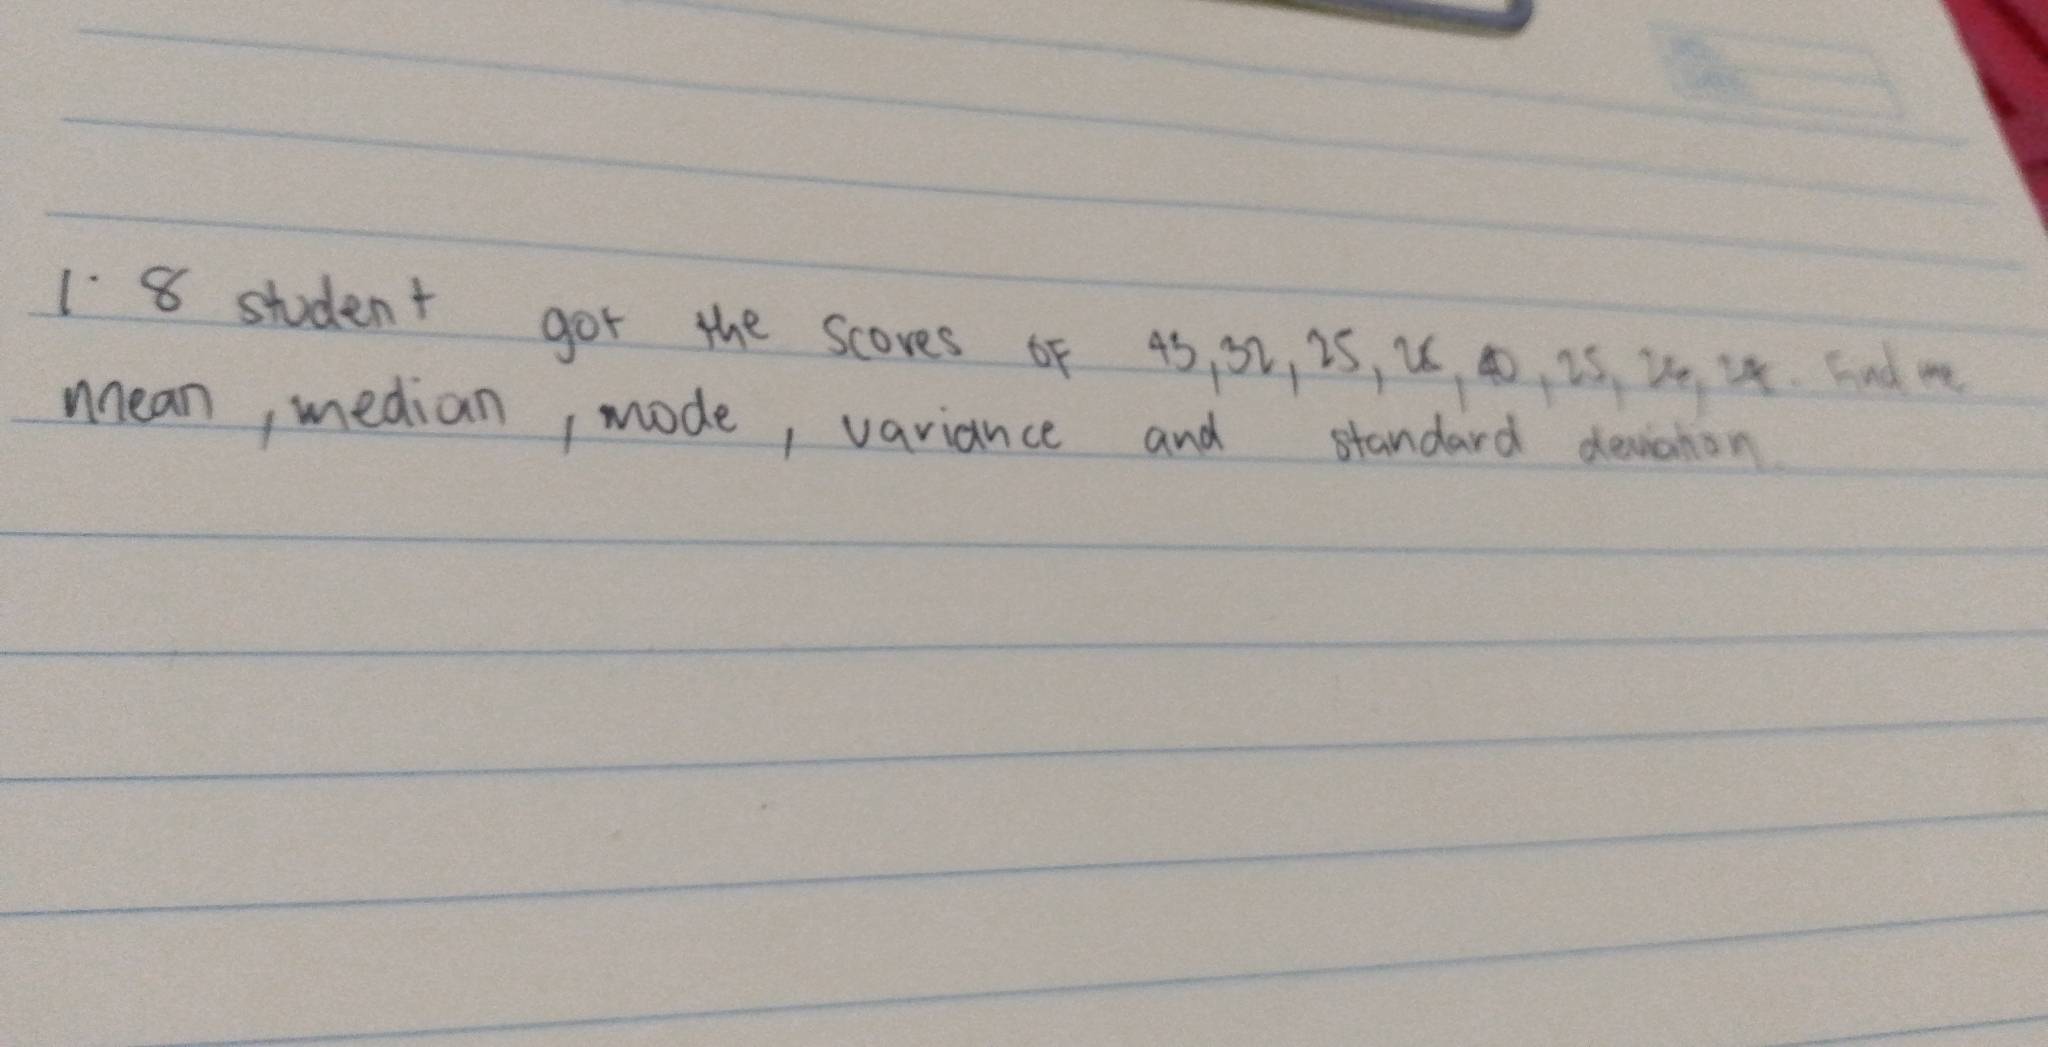 1. 8 student got the scores of 43, 32, 25, 26, 40, 25, Find the
mean, median, mode, variance and standard deviation